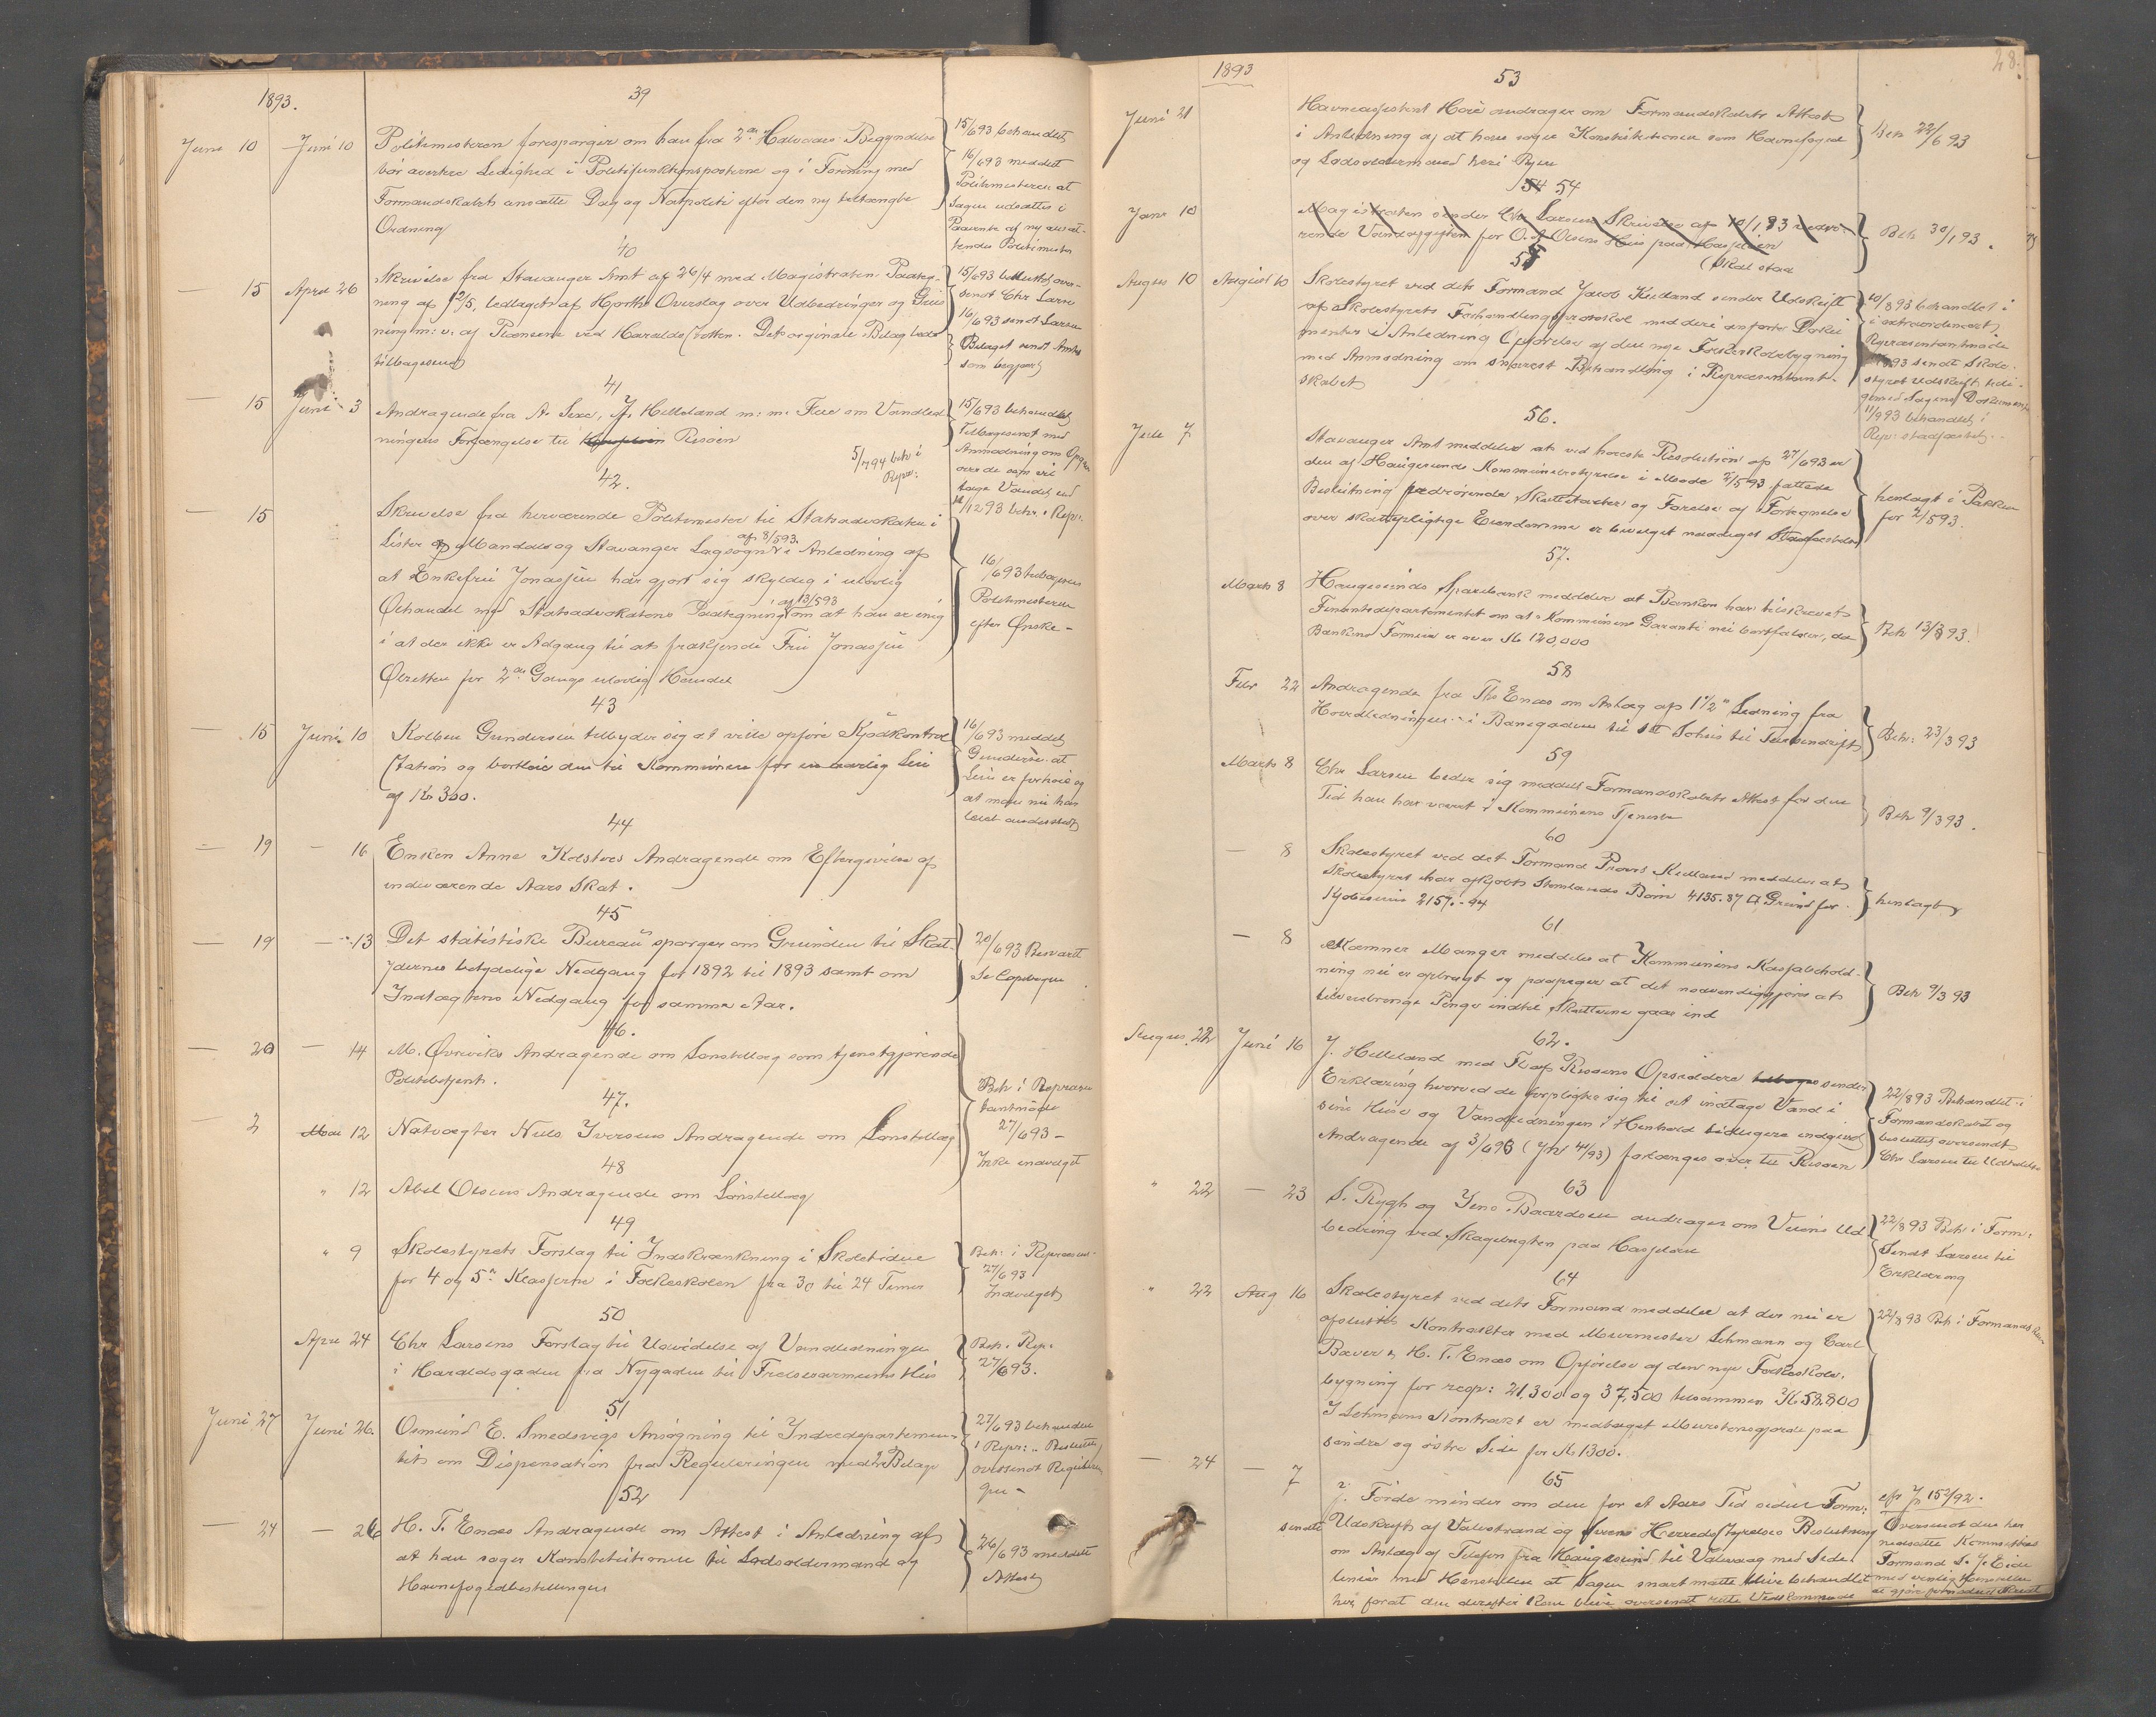 1893.
39
Juni 10 Juni 10 Politimesteren forespørger om han fra 2den Halvaars Begyndelse
bør avertere Ledighed i Politifunktionsposterne og i Forening med
Formandskabets ansætte Dag og Natpoliti efter den ny
Ordning
15/6 93 behandlet
16/6 93 meddelt
Politimesteren at
Sagen udsættes i
Paavente af ny
Politimester
40
— 15 April 26 Skrivelse fra Stavanger Amt af 26/4 med Magistratens Paateg-
ning af 12/5, ledsaget af Hjorths Overslag over Udbedringer og
ning m: v: af Pladsene ved Haralds Støtten. Det originale Bilag bedes
tilbagesendt
15/6 93 besluttet over-
sendt Chr Larsen
16/6 93 sendt Larsen
Bilaget sendt Amtet
som begjært
41
— 15 Juni 3 Andragende fra A. Sexe, J. Helleland m: m: Flere om Vandled
ningens Forlængelse til Risøen
5/7 94 beh i
Repr:
15/6 93 behandlet
Tilbagesendt med
Anmodning om Opgave
over de som vil
tage Vandet ind
11/12 93 beh: i Repr:
42.
— 15 Skrivelse fra herværende Politimester til Statsadvokaten i
Lister og Mandals og Stavanger Lagsogn af 8/5 93. i Anledning af
at Enkefru Jonassen har gjort sig skyldig i ulovlig
Ølhandel med Statsadvokatens Paategning af 13/5 93 om at han er enig
i at der ikke er Adgang til at frakjende Fru Jonassen
Ølretten for 2den Gangs ulovlig Handel
16/6 93 tilbagesendt
Politimesteren
efter Ønske –
43
— 15 Juni 10 Kolben Gundersen tilbyder sig at ville opføre Kjødkontrol
Station og bortleie den til Kommunen for en aarlig Leie
af Kr 300.
16/6 93 meddelt
Gundersen at
Leien er for høi og
at man nu har
leiet andetsteds
44
— 19 — 16 Enken Anne Kolstøs Andragende om Eftergivelse af
indeværende Aars Skat.
45
— 19 — 13 Det statistiske Bureau spørger om Grunden til Skat-
ydernes betydelige Nedgang for 1892 til 1893 samt om
Indtægtens Nedgang for samme Aar.
20/6 93 Besvaret
Se Copibogen
46.
— 20 — 14 M. Øvreviks Andragende om Lønstillæg som tjenstgjørende
Politibetjent.
47.
— 2 Mai 12 Natvægter Nils Iversens Andragende om Lønstillæg
Beh i Repræsen
tantmøde
27/6 93 –
Ikke indvilget
48
" 12 Abel Olsens Andragende om Lønstillæg
49
" 9 Skolestyrets Forslag til Indskrænkning i Skoletiden
for 4 og 5te Klasserne i Folkeskolen fra 30 til 24 Timer
Beh: i Repræsen-
27/6 93
Indvilget
50
April 24 Chr Larsens Forslag til Udvidelse af Vandledningen
i Haraldsgaden fra Nygaden til Frelsesarmeens Hus
Beh. Rep.
27/6 93.
51
Juni 27 Juni 26. Osmund E. Smedsvigs Ansøgning til Indredepartemen-
tet om Dispensation fra Reguleringen med 2 Bilage
27/6 93 behandlet
i Repr: Besluttet
oversendt Regulerin
gen –
52
— 24 — 26 H. T. Enæs Andragende om Attest i Anledning af
at han søger Konstitutionen til Lodsoldermand og
Havnefogedbestillingen
26/6 93 meddelt
Attest
28.
1893
53
Juni 21 Havneassistent Hove andrager om Formandskabets Attest
i Anledning af at han søger Konstitutionen som Havnefoged
og Lodsoldermand heri Byen
Beh 22/6 93
54 54
Janr 10 Magistraten sender Chr Larsens Skrivelse af 10/1 93 vedrø-
rende Vandafgiften for O. A Olsens Hus paa Hasseløen
(Skal staa
Beh 30/1 93.
55
August 10 August 10 Skolestyret ved dets Formand Jacob Kielland sender Udskrift
af Skolestyrets Forhandlingsprotokol med deri anførte Doku
menter i Anledning Opførelse af den nye Folkeskolebygning
med Anmodning om snarest Behandling i Repræsentant-
skabet
10/8 93 behandlet i
i extraordinært
Repræsentantmøde
93 sendt Skole-
styret Udskrift tilli-
gemed Sagens Dokumenter
11/9 93 behandlet i
Rep: stadfæstet.
56.
Juli 7 Stavanger Amt meddeler at ved høieste Resolution af 27/6 93 er
den af Haugesunds Kommunebestyrelse i Møde 2/5 93 fattede
Beslutning vedrørende Skattetaxter og Førelse af Fortegnelse
over skattepligtige Eiendomme er bevilget naadigst Stadfæstelse
henlagt i Pakken
for 2/5 93.
57.
Marts 8 Haugesunds Sparebank meddeler at Banken har tilskrevet
Finantsdepartementet om at Kommunens Garanti nu bortfalder, da
Bankens Formue er over Kr 120,000
Beh 13/3 93.
58
Febr 22 Andragende fra Ths Enæs om Anlæg af 1 1/2" Ledning fra
Hovedledningen i Banegaden til sit Sohus til Turbindrift
Beh: 23/3 93
59
Marts 8 Chr Larsen beder sig meddelt Formandskabets Attest for den
Tid han har været i Kommunens Tjeneste
Beh 9/3 93.
60
— 8 Skolestyret ved det Formand Provst Kielland meddeler at
Skolestyret har afkjøbt Stonlands Børn 4135.87 □ Grund for
Kjøbesum 2157.-94
henlagt
61
— 8 Kæmner Manger meddeler at Kommunens Kassabehold-
ning nu er opbrugt og paapeger at det nødvendiggjøres at
tilveiebringe Penge indtil Skatterne gaar ind
Beh 9/3 93
62.
August 22 Juni 16 J. Helleland med Fl af Risøens Opsiddere sender
Erklæring hvorved de forpligter sig til at indtage Vand i
sine Huse og Vandledningen i Henhold tidligere indgivet
Andragende af 3/6 93 (Jr 41/93) forlænges over til Risøen
22/8 93 Behandlet i
Formandskabet og
besluttet oversendt
Chr Larsen til Udtalelse
63
" 22 — 23 S. Rygh og Jens Baardsen andrager om Veiens Ud
bedring ved Skagebugten paa Hasseløen
22/8 93 Beh i Form:
Sendt Larsen til
Erklæring
64
" 22 Aug 16 Skolestyret ved dets Formand meddeler at der nu er
afsluttet Kontrakter med Murmester Lehmann og Carl
Bæver & H. T. Enæs om Opførelse af den nye Folkeskole-
bygning for resp: 21,300 og 37,500 tilsammen Kr 58,800
I Lehmanns Kontrakt er medtaget Murstensgjærde paa
søndre og østre Side for Kr 1300.
22/8 93 Beh i Formandsk
65
— 24 — 7 J. Førde minder om den for et Aars Tid siden Form:
sendte Udskrift af Valestrand og Sveens Herredsstyrelses Beslutning
om Anlæg af Telefon fra Haugesund til Valevaag med Side-
linier med Henstillen at Sagen snart maatte blive behandlet
her, forat den derefter kan blive oversendt rette Vedkommende
cfr Jr 152/92.
Oversendt den her
nedsatte Kommittes
Formand S. J. Eide
med venlig Henstillen
at gjøre fornødent Skridt